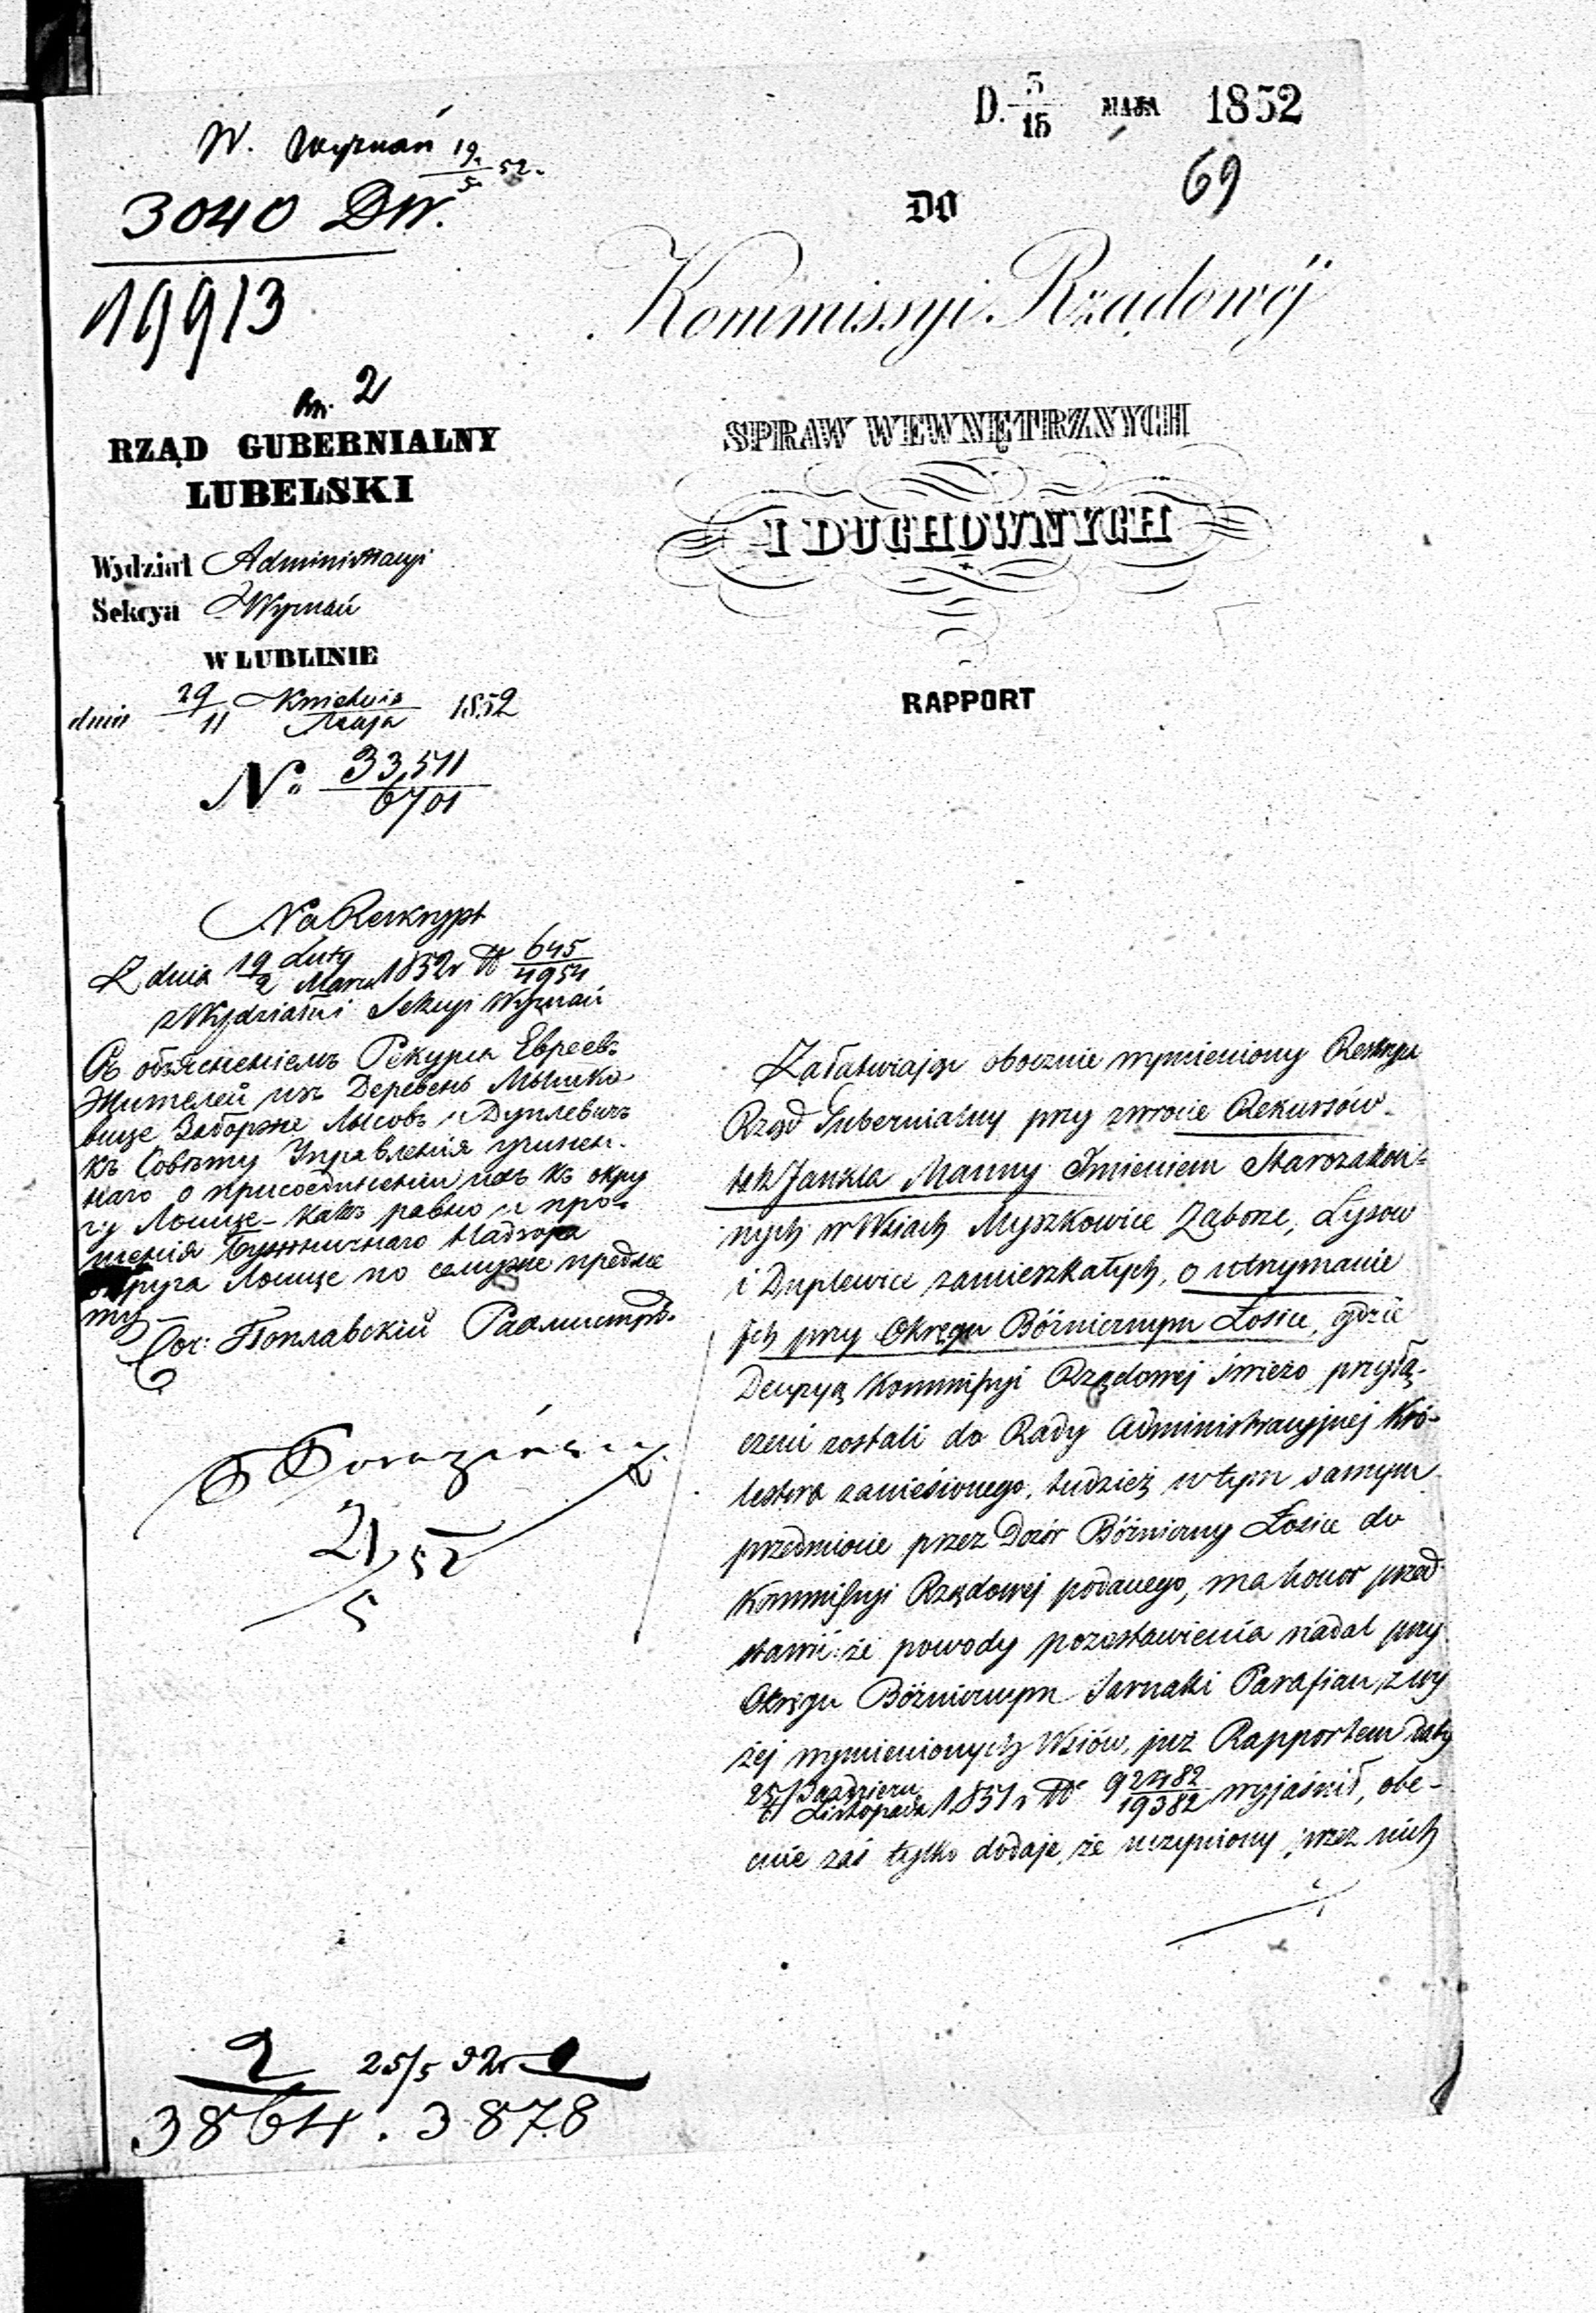 D. 3/15 MAJA 1852
69
W. Wyznań 19/5 52.
3040 DW.
19913
2
RZĄD GUBERNIALNY
LUBELSKI
Wydział Administracyi
Sekcya Wyznań
W LUBLINIE
dnia 29/11 Kwietnia/Maja 1852
No. 33,511/6701
DO
Kommissyi Rządowéj
SPRAW WEWNĘTRZNYCH
I DUCHOWNYCH
RAPPORT
Na Reskrypt
Z dnia 19/2 Luty/Marca 1852 r N 645/4954
z Wydziału i Sekcyi Wyznań
Съ объясненіемъ Рекурса Евреевъ
Жителей изъ Деревень Мышко
вице Заборже Лысовъ и Дуплевичъ
къ Совѣту Управленія учинен-
наго о присоединеніи ихъ къ окру
гу Лошице - какъ равно и про-
шенія Бужничнаго Надзора
округа Лошице по сему же предме
ту
Поплавскій
21/5 52
Załatwiając obocznie wymieniony Reskrypt
Rząd Gubernialny przy zwrocie Rekursów
Jankla Manny Imieniem Starozakon-
nych w Wsiach Myszkowice Zaborze, Łysow
i Duplewice zamieszkałych, o utrzymanie
ich przy Okręgu Bóżnicznym Łosice, gdzie
Decyzyą Kommissyi Rządowej świeżo przyłą-
czeni zostali do Rady Administracyjnej Kró-
lestwa zaniesionego, tudzież w tym samym
przedmiocie przez Dozór Bóżniczny Łosice do
Kommissyi Rządowej podanego, ma honor przed
stawić że powody pozostawienia nadal przy
Okręgu Bóżniczym Sarnaki Parafian z wy
żej wymienionych Wsiów, już Rapportem daty
25/6 Październ/Listopada 1851 r No 92482/19382 wyjaśnił, obe-
cnie zaś tylko dodaje, że uczyniony przez nich
2 25/5 52
3864. 3878